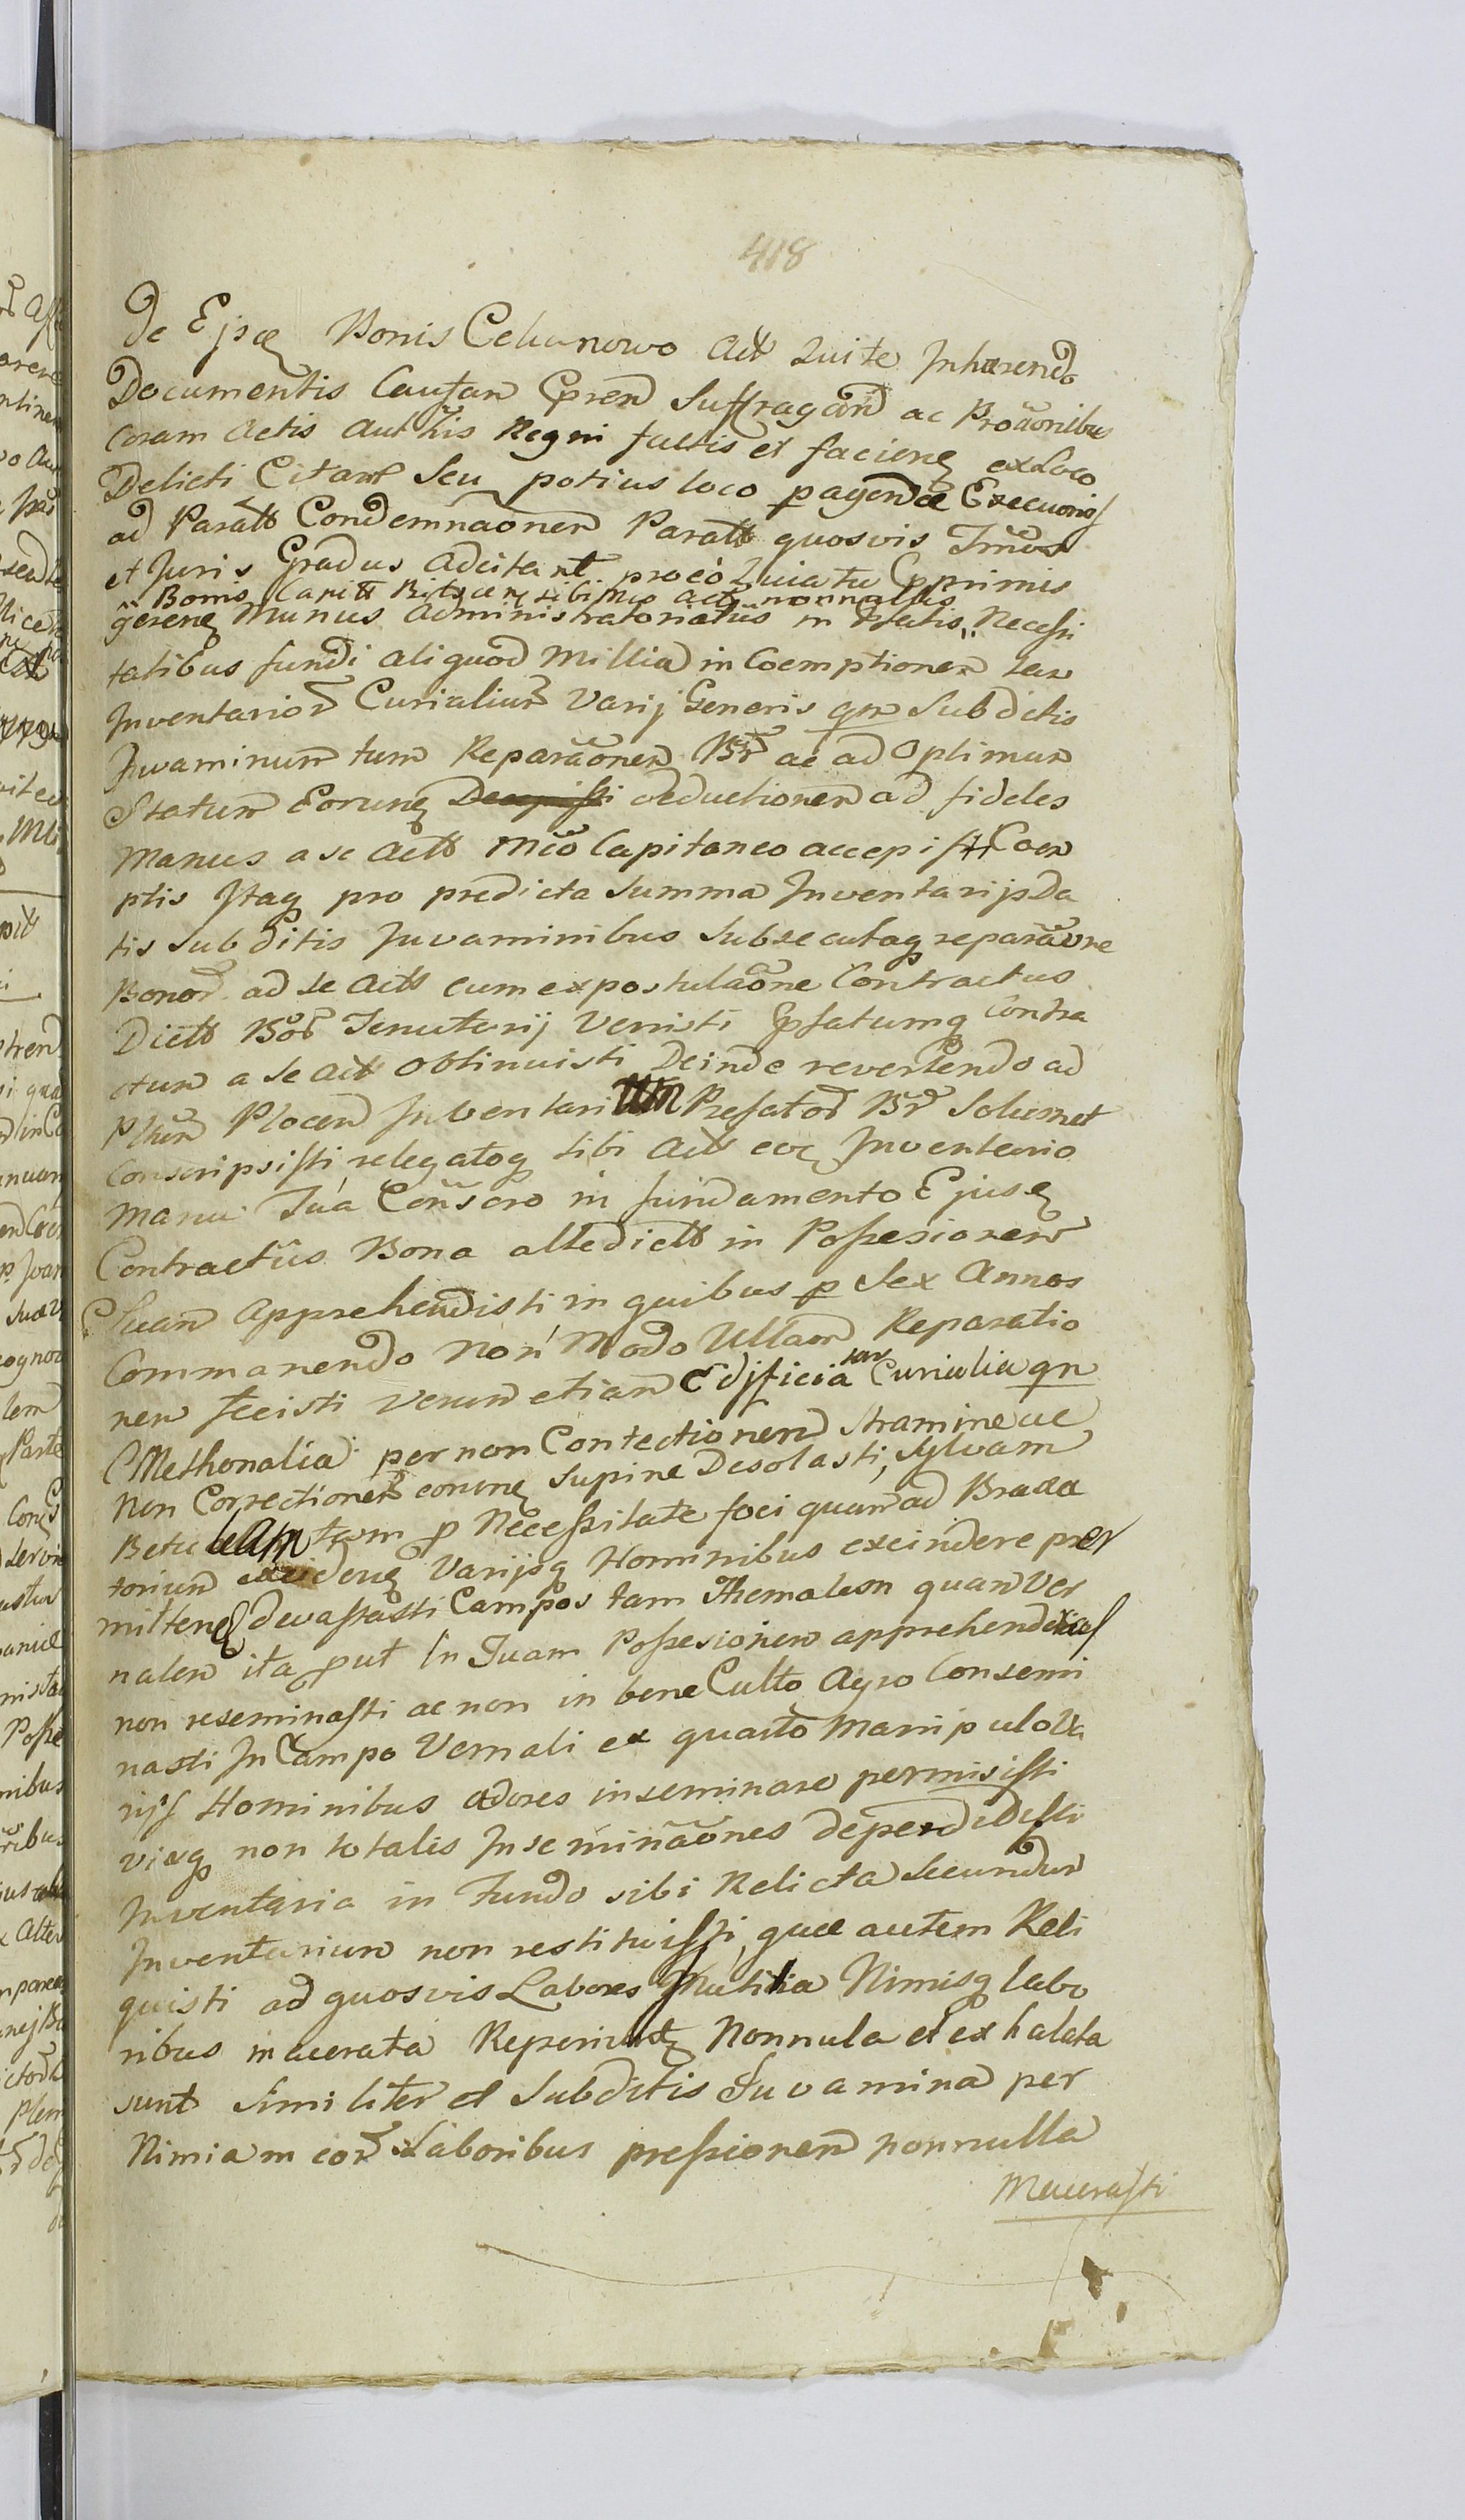 418
De Ejsq Bonis Celianowo Actt Quite Inhærendo
Documentis Causam Ppren Suffragan ac Proãonibus
Coram Actis Authis Regni factis et faciene ex Loco
Delicti Citant Seu potius loco pagendæ Execuonis
ad Paratt Condemnãonem Paratt quosvis Tmos
et Juris Gradus adcitant pro eo Quia tu Pprimis
Bonis Capitt sibi Mco Actt nonnullis
gerene Munus Administratoriatus in Necessi
tatibus fundi aliquod Millia in Coemptionem tam
Inventarior Curialium Varij Generis qm Subditis
Juvaminum tum Reparãonem Br ac ad Optimum
Statum Eorune deductionem ad fideles
Manus a se Actt Mco Capitaneo accepisti Coem
ptis Itaq pro predicta Summa Inventarijs Da
tis Subditis Juvaminibus Subsecutaq reparãone
Bonor ad se Actt cum expostulãone Contractus
Dictt Bor Tenutarij Venisti Psatumq Contra
ctum a se Actt obtinuisti Deinde revertendo ad
Plum Plocen Inventarium Prefator Br Solumet
Conscripsisti, relegatoq sibi Actt eoq Inventario
Manu Tua Consero in fundamento Ejuse
Contractus Bona alledictt in Possesionem
Suam apprehendisti, in quibus p Sex Annos
Commanendo Non Modo Ullam Reparatio
nem fecisti Verum etiam Edificia tam Curialia qm
Methonalia per non Contectionem stramine ac
Non Correctionem eorune Supine Desolasti, Sylvam
Betuleam tam p Necessitate foci quam ad Braxa
torium excidene Varijsq Hominibus excindere per
mittene devastasti Campos tam Hiemalem quam Ver
nalem ita put In Tuam Possesionem apprehenderas
non reseminasti ac non in bene Culto Agro Consemi
nasti In Campo Vernali ex quarto Manipulo Va
rijs Hominibus adores inseminare permisisti
viaq non totalis Inseminãones deperdidisti
Inventaria in Fundo sibi Relicta Secundum
Inventarium non restituisti, quæ autem Reli
quisti ad quosvis Labores Inutilia Nimisq labo
ribus macerata Reperiunt Nonnula et exhalata
sunt Similiter et Subditis Juvamina per
Nimiam eor Laboribus pressionem nonnulla
Macerasti